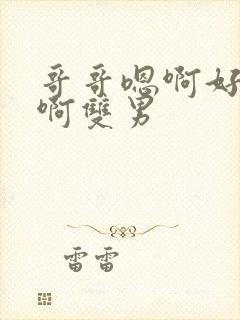 哥哥嗯啊好
啊雙男
雷雷